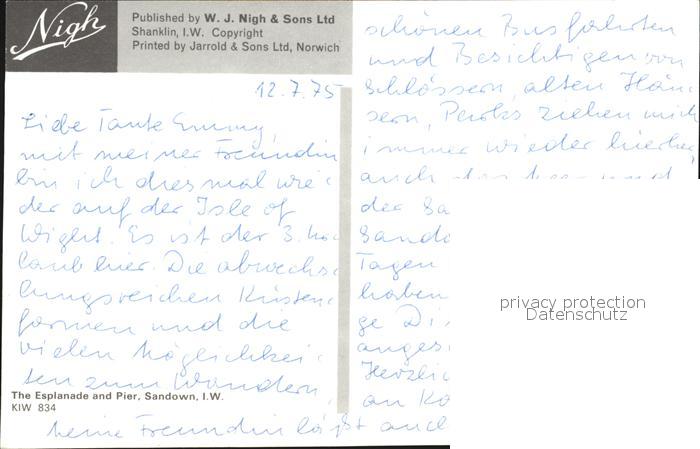 Nigh
Published by W. J. Nigh & Sons Ltd
Shanklin, I.W. Copyright
Printed by Jarrold & Sons Ltd, Norwich
12.7.75
Liebe Tante Emmy,
mit meiner Freundin
bin ich diesmal wie-
der auf der Isle of
Wight. Es ist der 3.
laub hier. Die abwechs-
lungsreichen Küsten-
formen und die
vielen Möglichkei-
ten zum Wandern,
The Esplanade and Pier, Sandown, I.W.
KIW 834
schönen Busfahrten
und Besichtigen von
Schlössern, alten Häu-
sern, Parks ziehen mich
immer wieder hierher,
auch das und
der
Tagen
haben
Meine Freundin läßt auch
privacy protection
Datenschutz